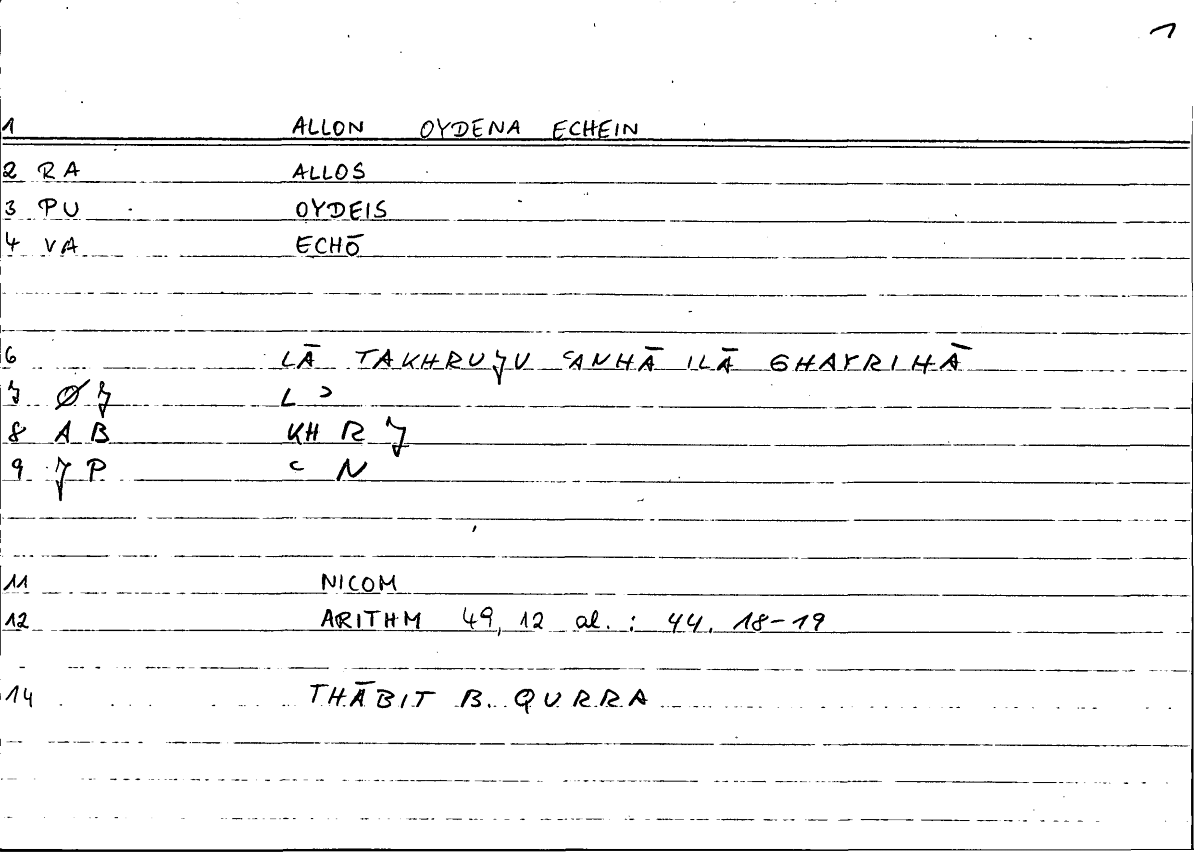 1
1 ALLON OYDENA ECHEIN
2 RA ALLOS
3 PU OYDEIS
4 VA ECHŌ
6 LĀ TAKHRUJU ʿANHĀ ILĀ GHAYRIHĀ
7 Ø J L ʾ
8 A B KH R J
9 J P ʿ N
11 NICOM
12 ARITHM 49, 12 al. : 44. 18-19
14 THĀBIT B. QURRA